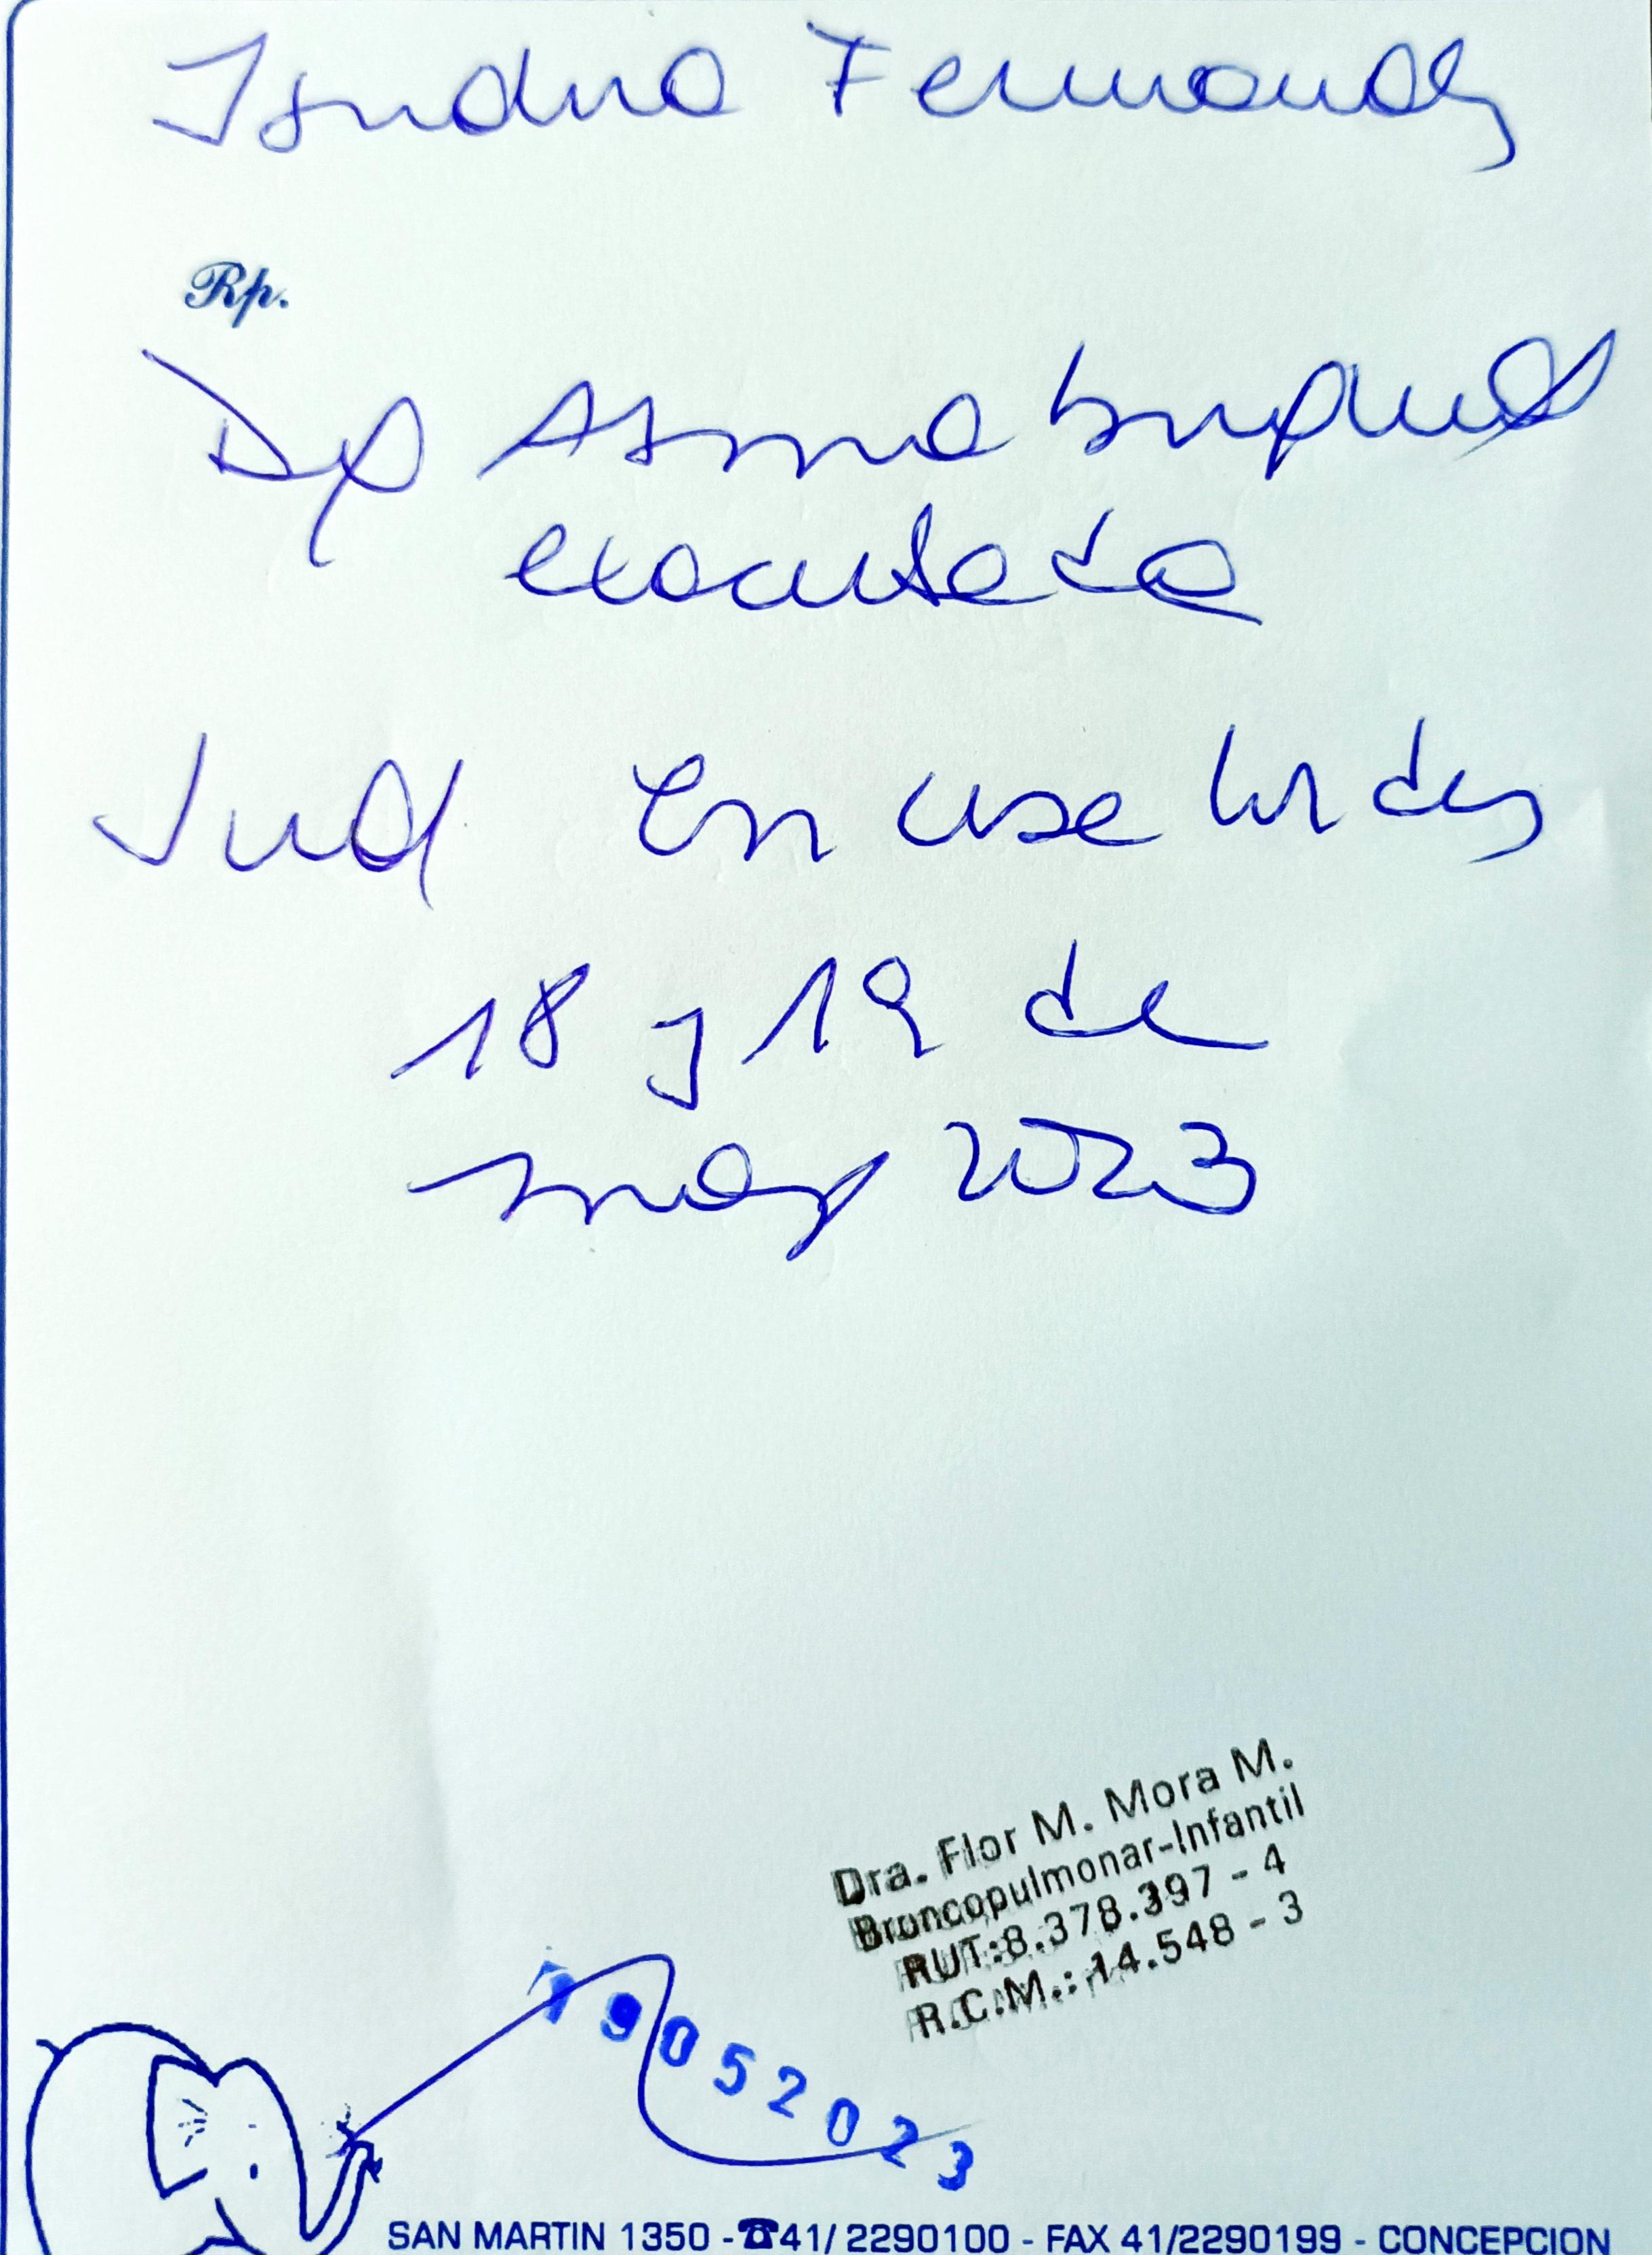 Isidora Fernandez
Rp.
Dg Asma bronquial
exacerbada
Ind En casa los dias
18 y 19 de
mayo 2023
Dra. Flor M. Mora M.
Broncopulmonar-Infantil
RUT:8.378.397 - 4
R.C.M.: 14.548 - 3
19052023
SAN MARTIN 1350 - ☎41/ 2290100 - FAX 41/2290199 - CONCEPCION